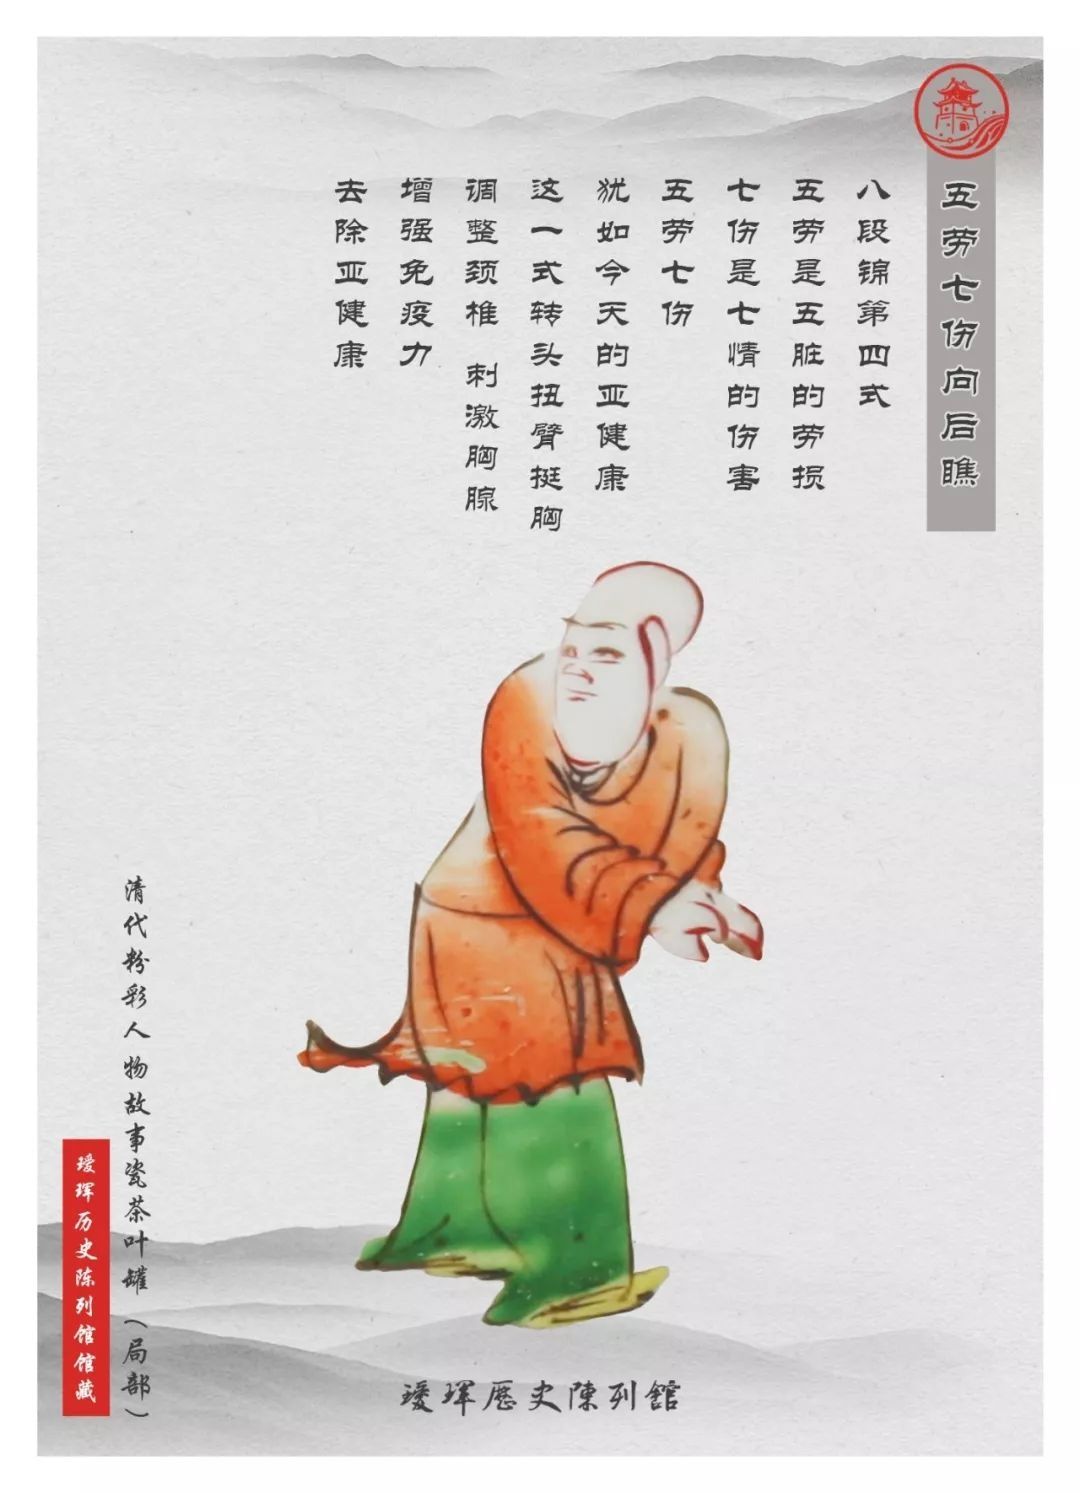 五劳七伤向后瞧
八段锦第四式
五劳是五脏的劳损
七伤是七情的伤害
五劳七伤
犹如今天的亚健康
这一式转头扭臂挺胸
调整颈椎 刺激胸腺
增强免疫力
去除亚健康
清代粉彩人物故事瓷茶叶罐（局部）
瑷珲历史陈列馆馆藏
瑷珲歷史陳列館